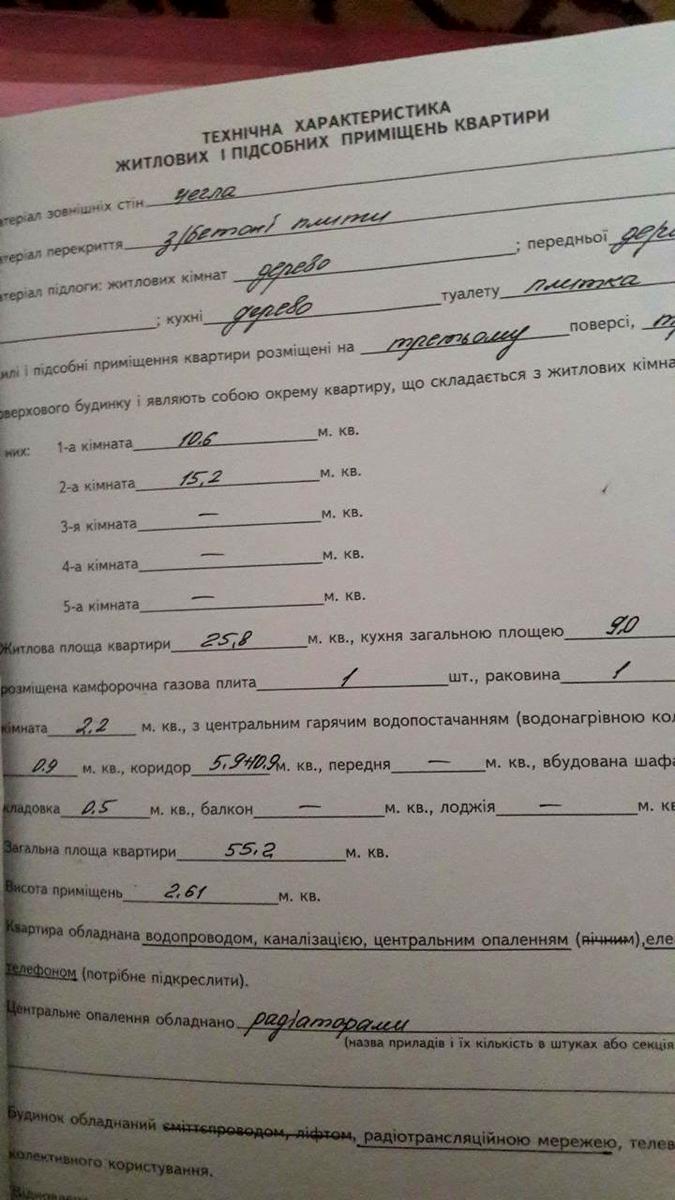 ТЕХНІЧНА ХАРАКТЕРИСТИКА
ЖИТЛОВИХ І ПІДСОБНИХ ПРИМІЩЕНЬ КВАРТИРИ
атеріал зовнішніх стін цегла
атеріал перекриття з/бетоні плити
атеріал підлоги: житлових кімнат дерево ; передньої дер
; кухні дерево туалету плитка
илі і підсобні приміщення квартири розміщені на третьому поверсі,
оверхового будинку і являють собою окрему квартиру, що складається з житлових кімна
них: 1-а кімната 10.6 м. кв.
2-а кімната 15,2 м. кв.
3-я кімната — м. кв.
4-а кімната — м. кв.
5-а кімната — м. кв.
Житлова площа квартири 25,8 м. кв., кухня загальною площею 9.0
розміщена камфорочна газова плита 1 шт., раковина 1
кімната 2,2 м. кв., з центральним гарячим водопостачанням (водонагрівною кол
0.9 м. кв., коридор 5,9+10.9 м. кв., передня — м. кв., вбудована шафа
кладовка 0.5 м. кв., балкон — м. кв., лоджія — м. кв
Загальна площа квартири 55,2 м. кв.
Висота приміщень 2.61 м. кв.
Квартира обладнана водопроводом, каналізацією, центральним опаленням (пічним),еле
телефоном (потрібне підкреслити).
Центральне опалення обладнано радіаторами
(назва приладів і їх кількість в штуках або секція
Будинок обладнаний сміттєпроводом, ліфтом, радіотрансляційною мережею, телев
колективного користування.